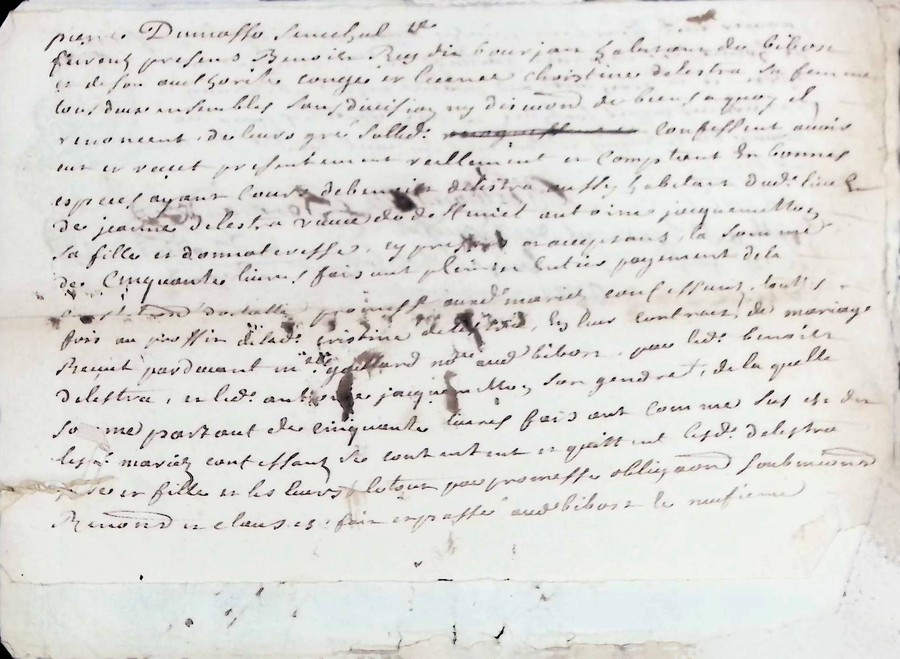 pierre Dumasso senechal
furent presens Benoist Rey dit bourjan habitans du bibost
et de son authorité conge et licence christine delestra sa femme
tous deux ensembles sans division ny discond de biens a quoy il
renoncent, de leurs gré sallrd. confessent avoir
eut et receut presentement reellement et comptant En bonnes
especes ayant cours de benoist delestra aussy habitant dud. lieu
De jeanne delestra veuve de antoine jacquemetton
sa fille et donnateresse, cy presens et acceptans, la somme
de Cinquante livres faisant plein et Entier payement de la
promesse auxd. mariez confessans,
fois au proffit de lad. cristine delestra, En leur contrait de mariage
Receut pardevant me gaillard nore aud bibost, par led. benoist
Delestra, et led. antoine jacquemetton son gendre, de la quelle
somme partant de cinquante livres faisant comme sus est dit
lesd. mariez confessans se contentent et quittent lesd. delestra
pere et fille et les leurs, le tout par promesse obligaond soubmiond
Renond et clauses: fait et passé aud bibost le neufieme